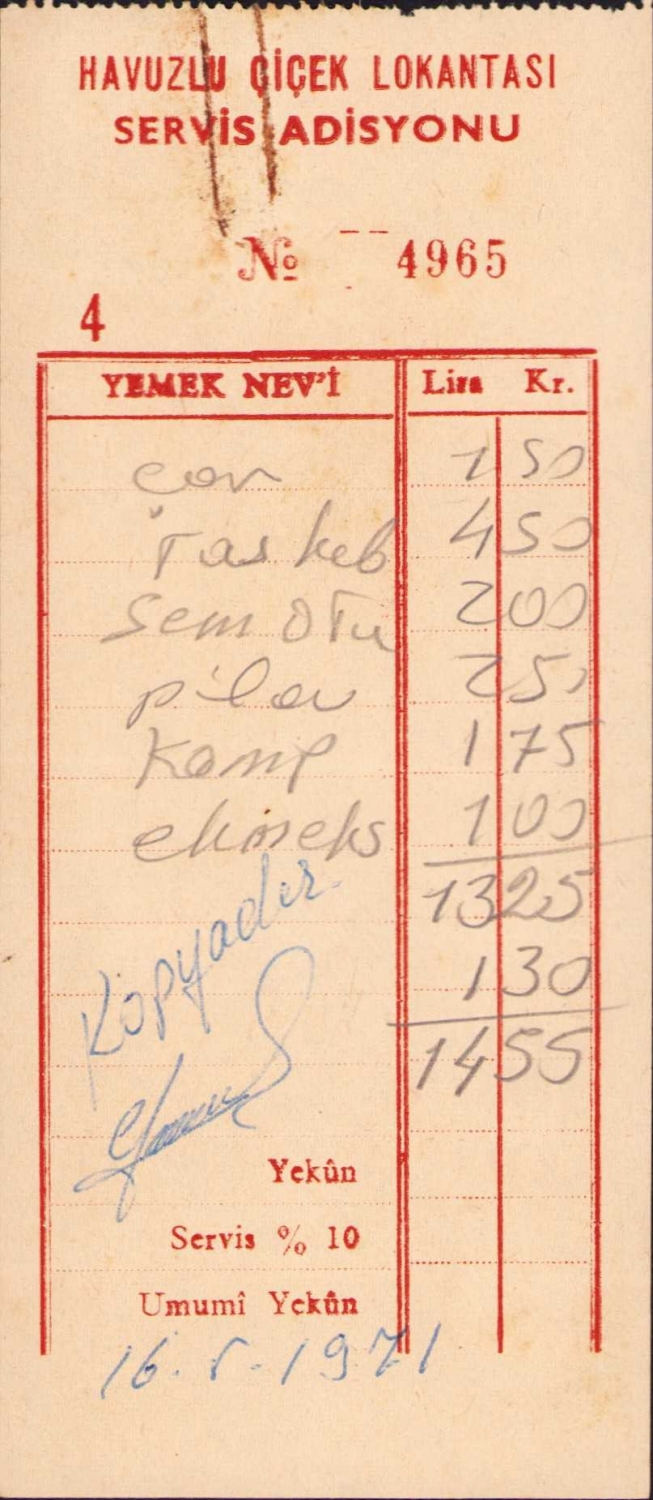 HAVUZLU ÇİÇEK LOKANTASI
SERVİS ADİSYONU
№ 4965
4
YEMEK NEV'İ Lira Kr.
çor 1 50
Tas keb 4 50
Sem otu 2 00
pilav 2 50
Komp 1 75
ekmek 1 00
13 25
1 30
14 55
Kopyadır
Yekûn
Servis % 10
Umumî Yekûn
16.5.1971